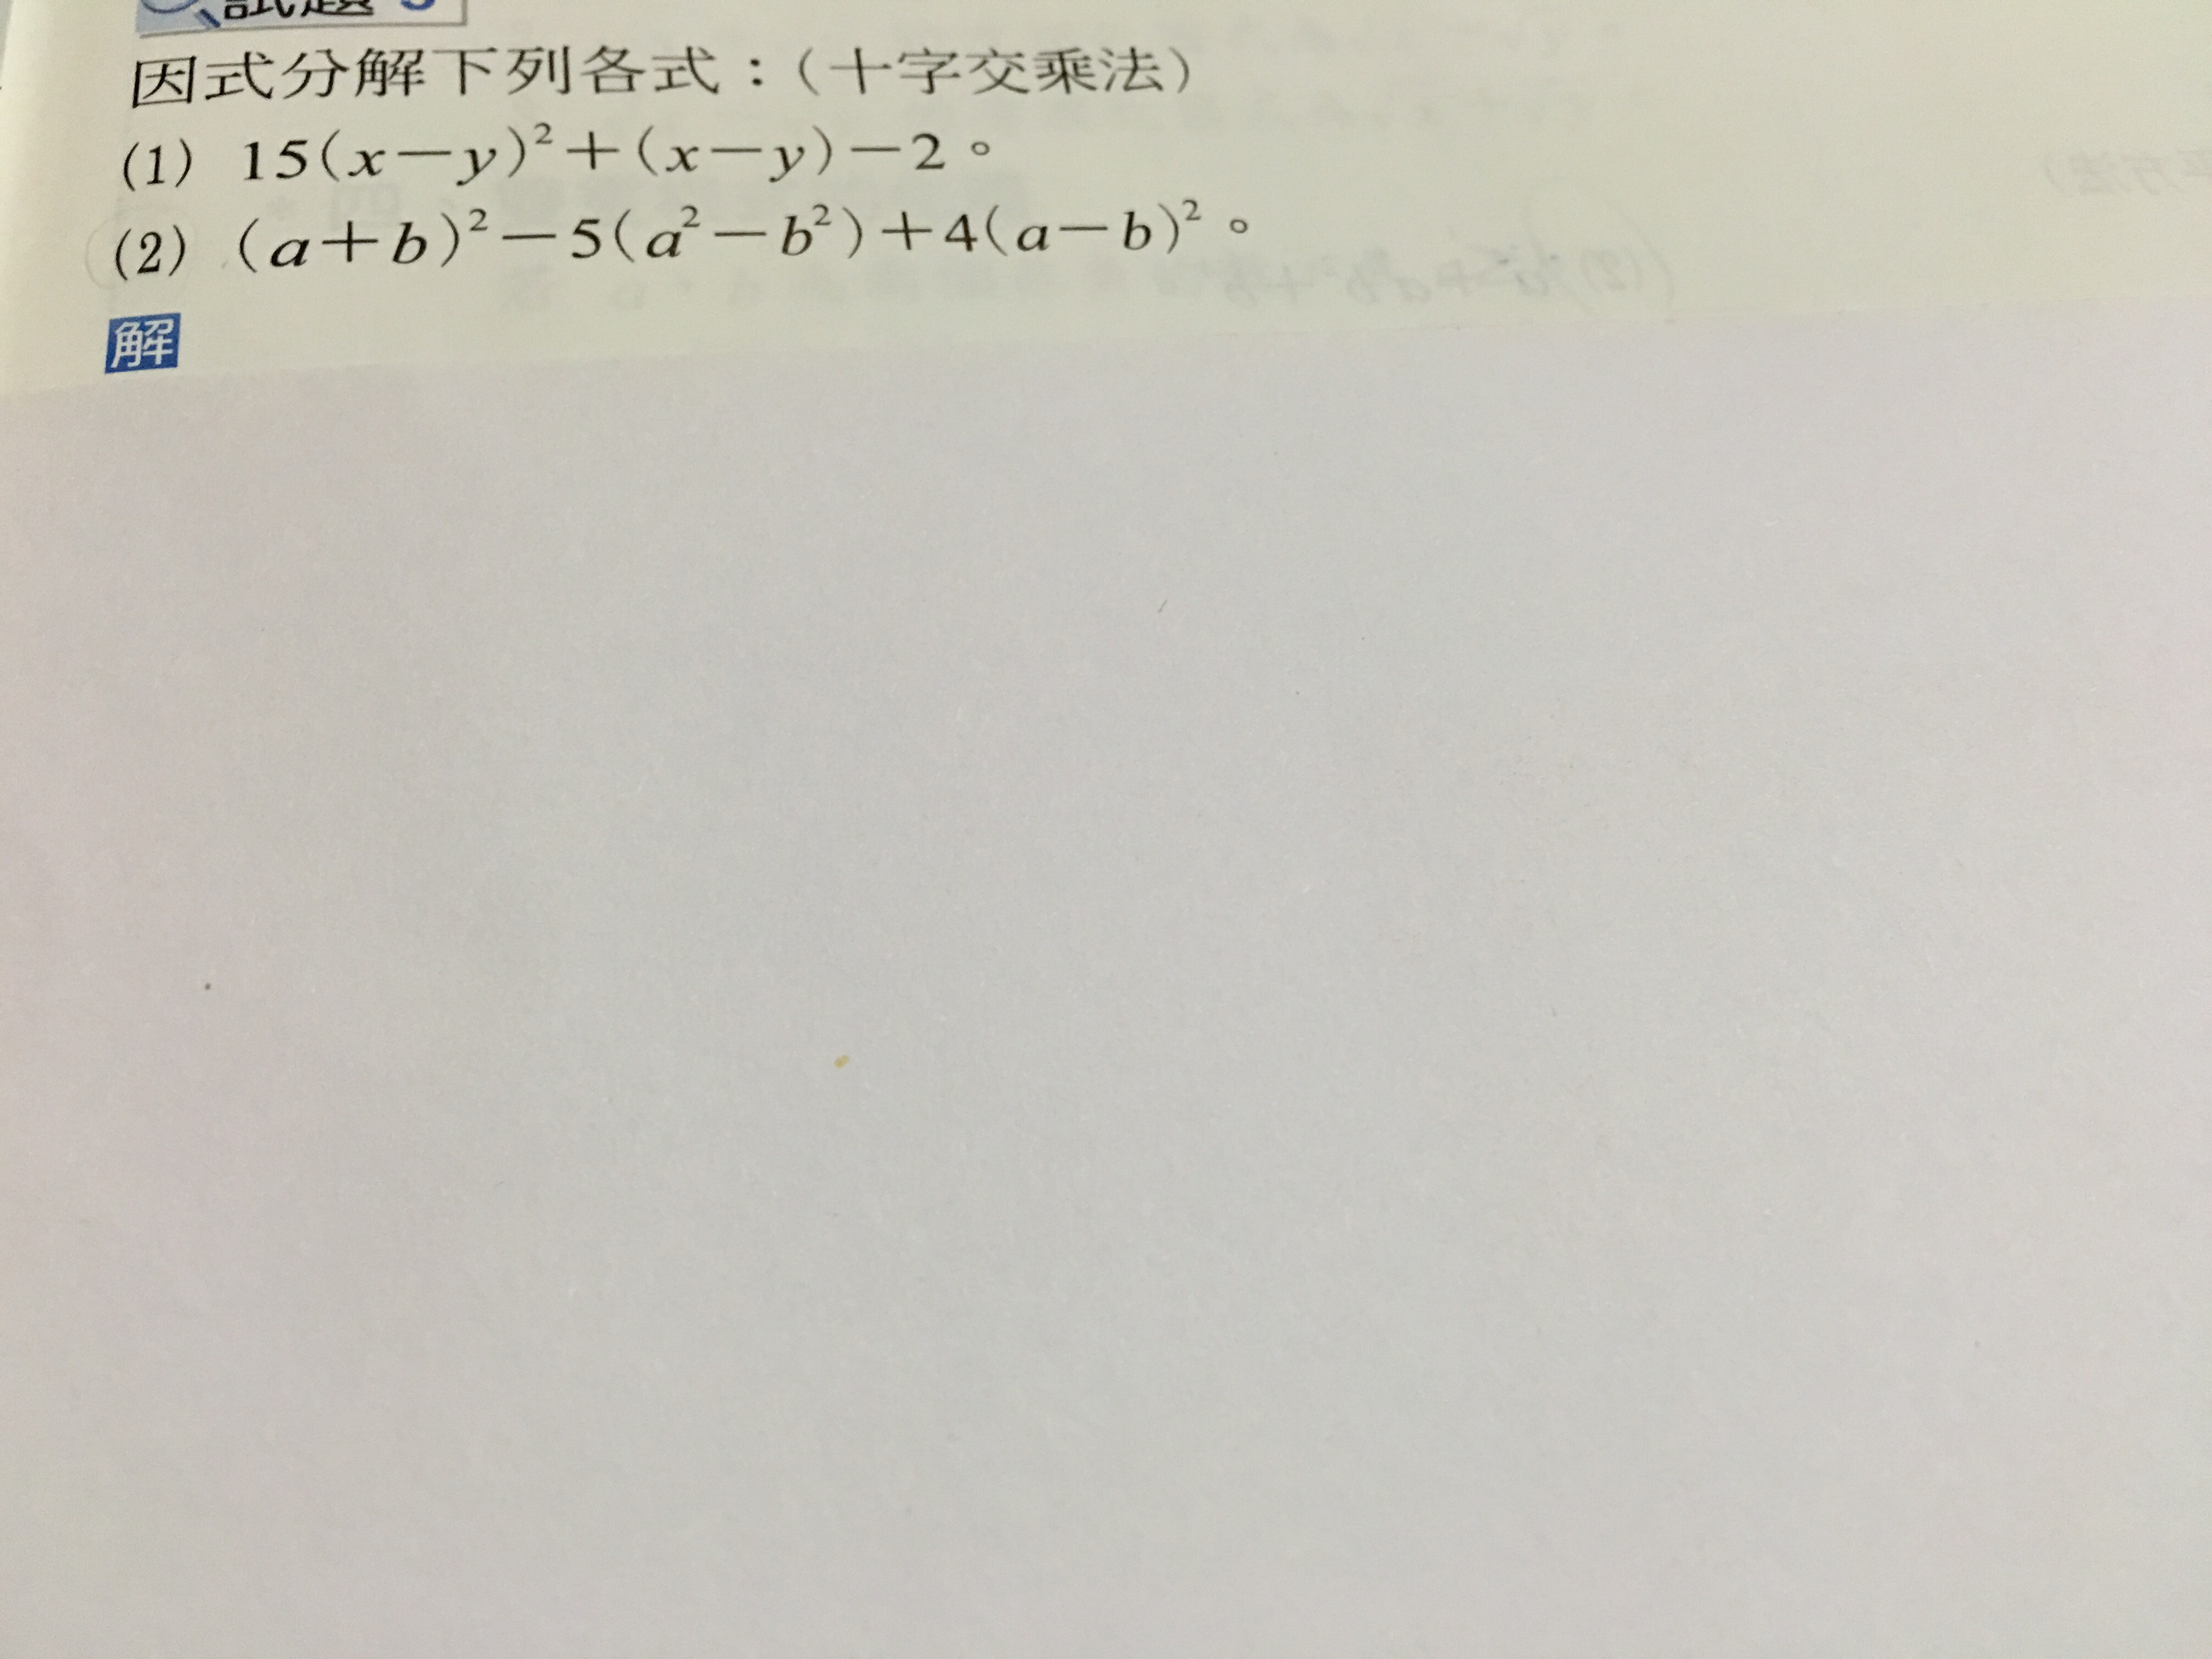 試題 5
因式分解下列各式：（十字交乘法）
(1) 15(x－y)²＋(x－y)－2。
(2) (a＋b)²－5(a²－b²)＋4(a－b)²。
解